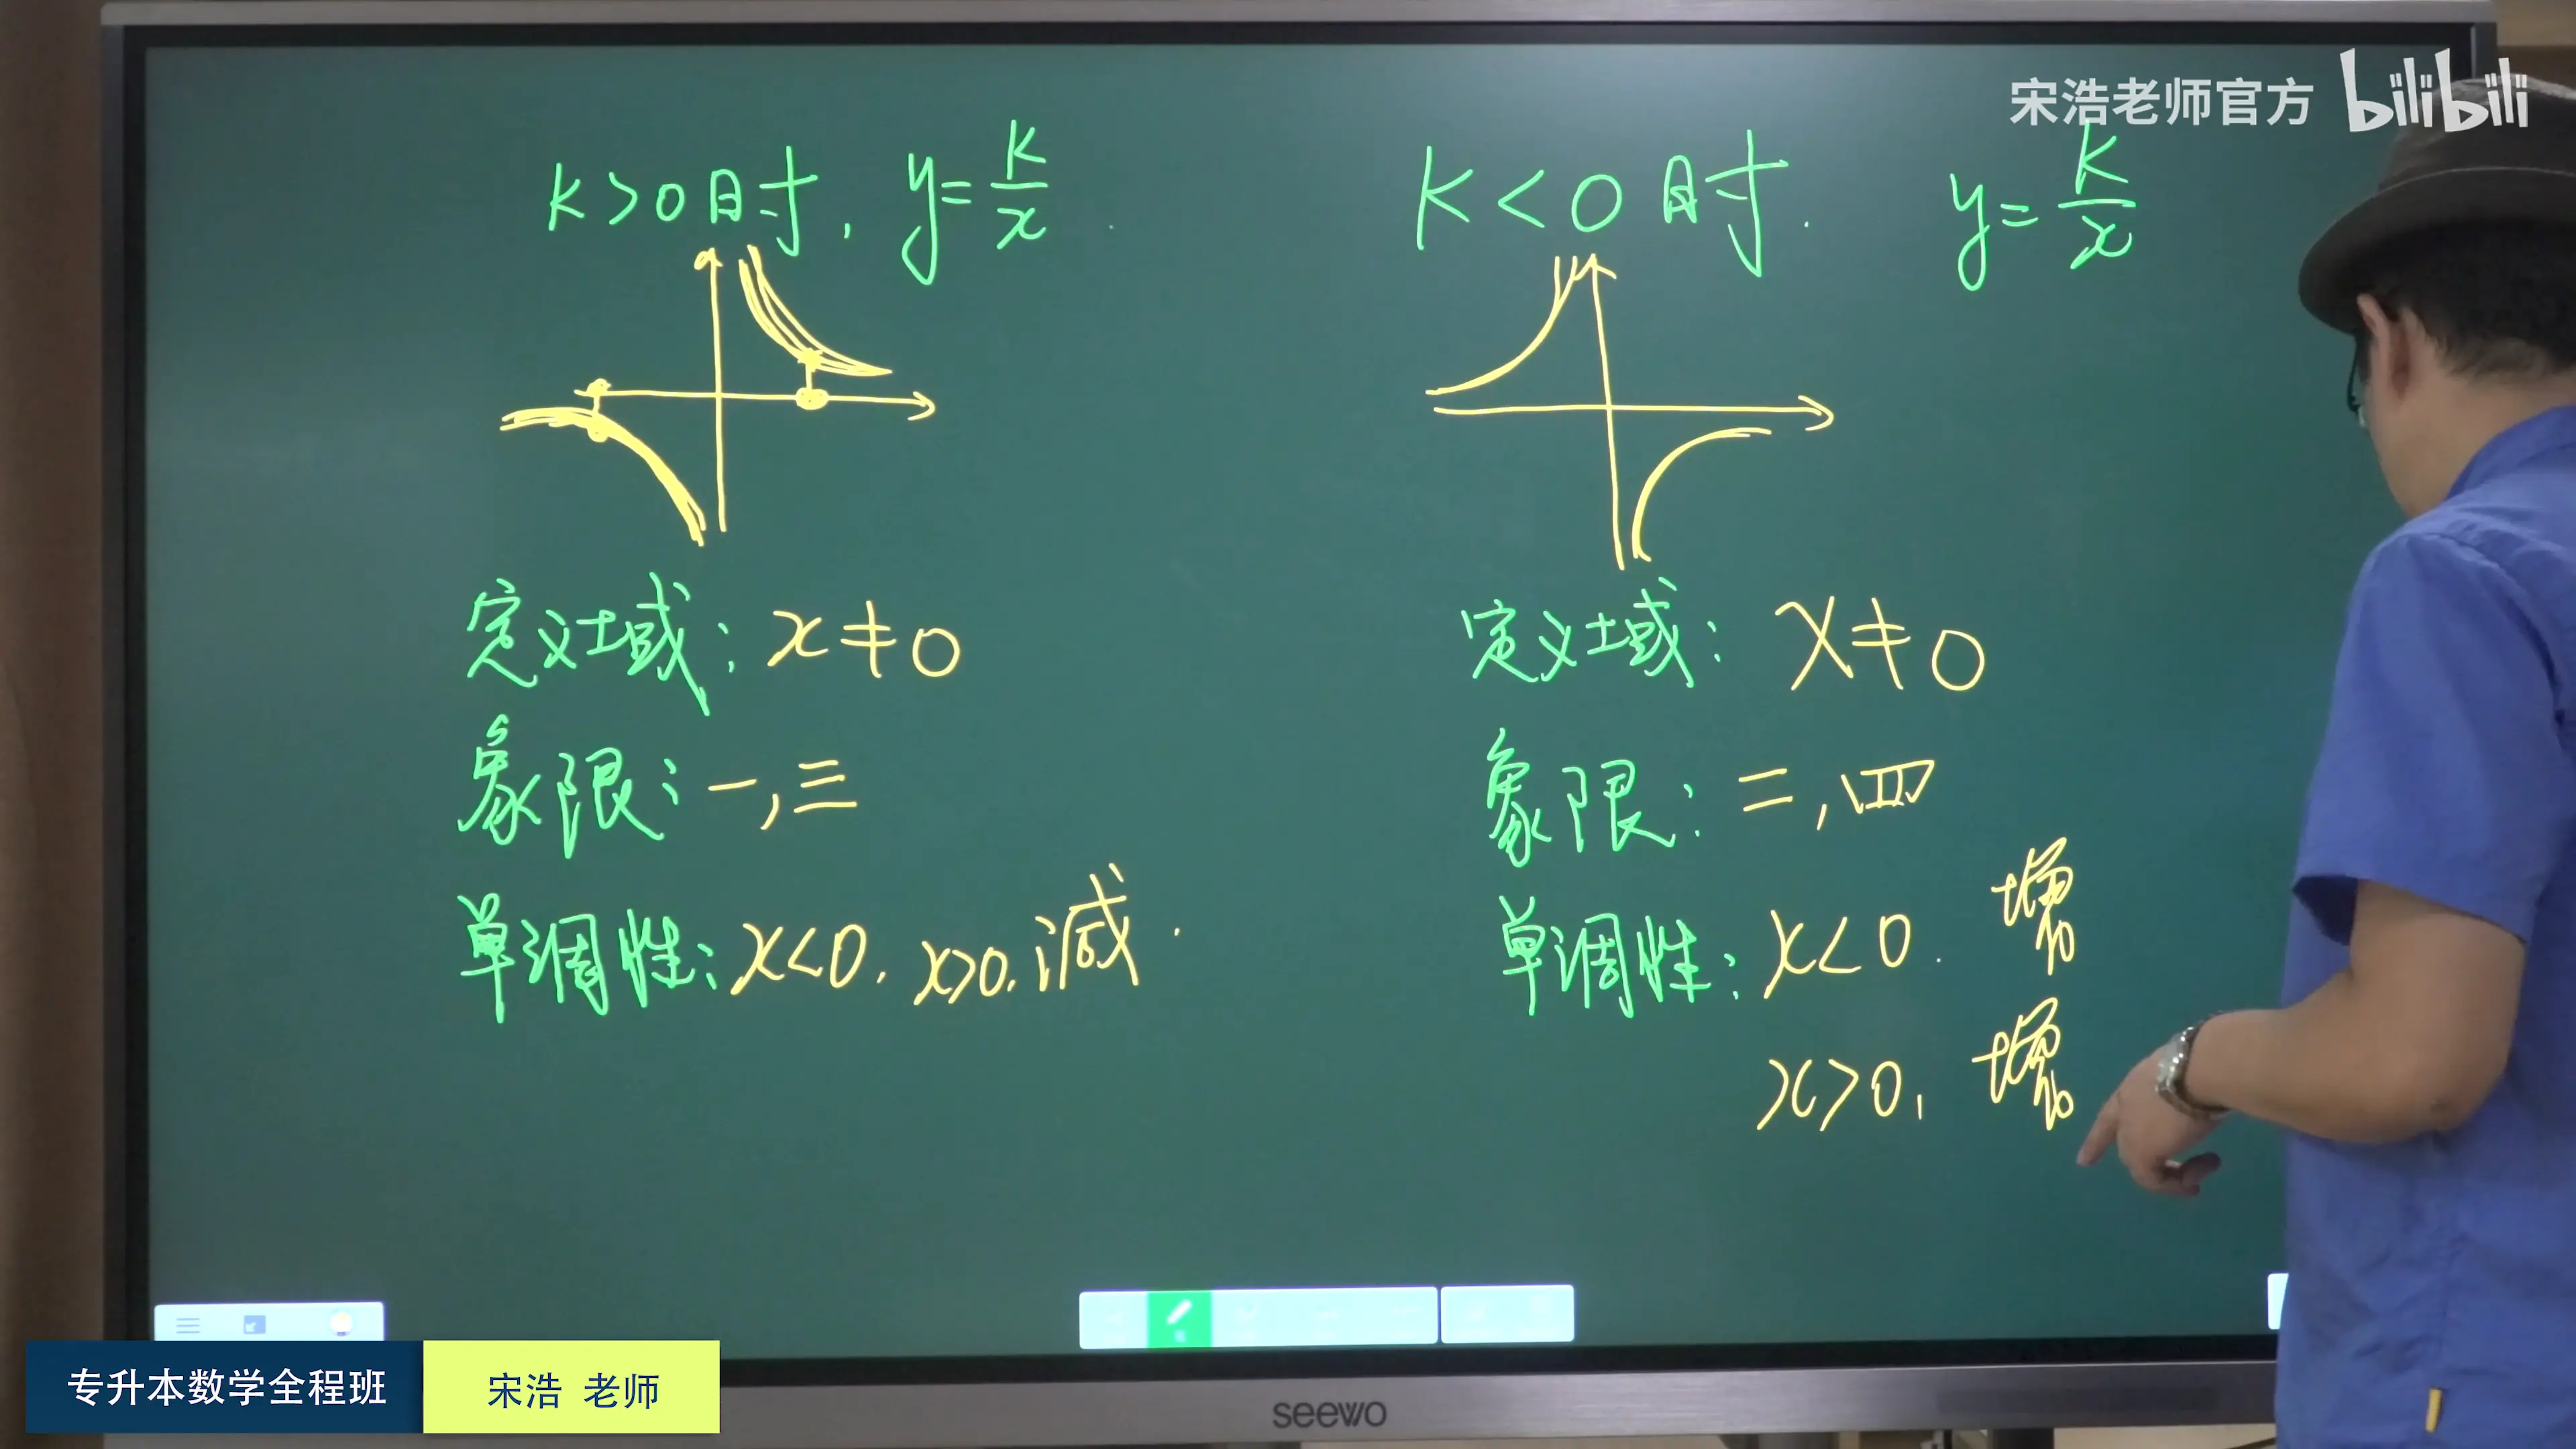 宋浩老师官方 bilibili
k>0时, y=k/x
定义域: x≠0
象限: 一, 三
单调性: x<0, x>0, 减.
k<0时. y=k/x
定义域: x≠0
象限: 二, 四
单调性: x<0. 增
x>0, 增
专升本数学全程班
宋浩 老师
seewo